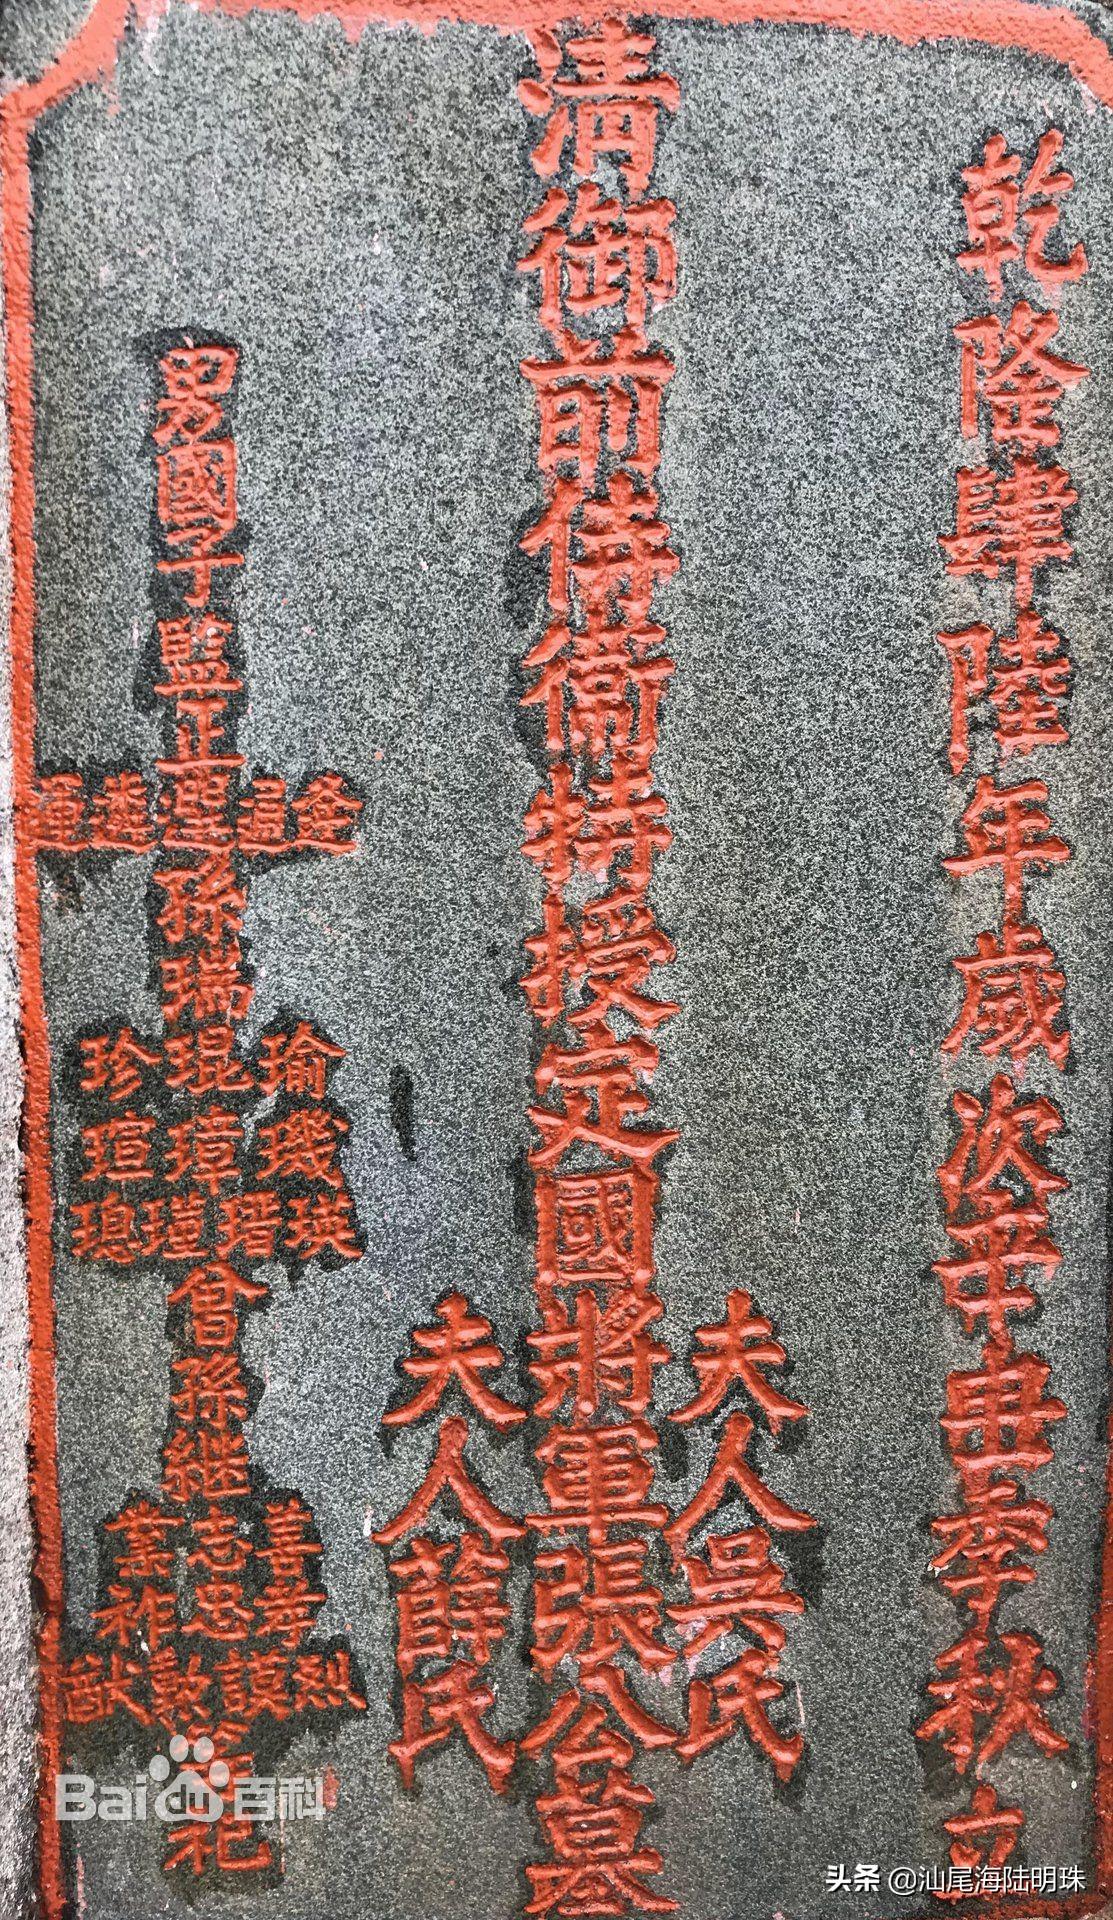 乾隆肆陸年歲次辛丑季秋立
夫人吳氏
清御前侍衛特授定國將軍張公墓
夫人薛氏
男國子監正
遴
孫瑞
瑜琨珍
璣璋瑄
瑛瑨璁
曾孫继
善志業
孝忠祚
烈謨勲猷
仝祀
Bai百科
头条 @汕尾海陆明珠